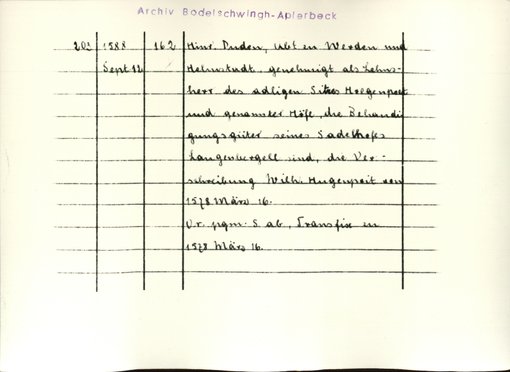 Archiv Bodelschwingh-Aplerbeck
203 1588 162 Hinr. Duden, Abt in Werden und
Sept. 12 Helmstadt, genehmigt als Lehns-
herr des adligen Sitzes Hugenpoet
und genannter Höfe, die Behandi-
gungsgüter seines Sadelhofes
Langenbergell sind, die Ver-
schreibung Wilh. Hugenpoit von
1578 März 16.
Or. pgm. S. ab, Transfix in
1578 März 16.